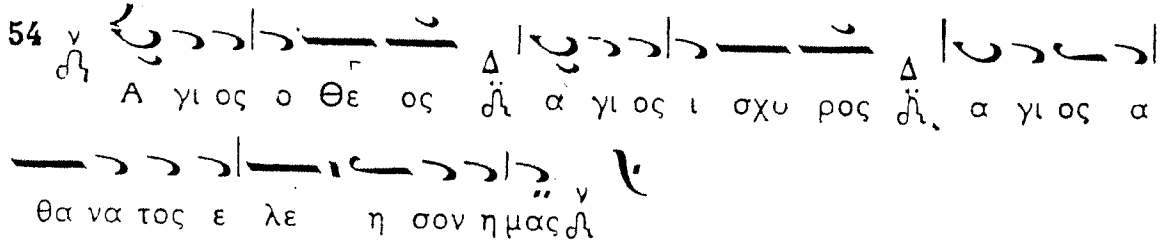 54 ν Α γι ος ο Θε ος Δ α γι ος ι σχυ ρος Δ α γι ος α
θα να τος ε λε η σον η μας ν